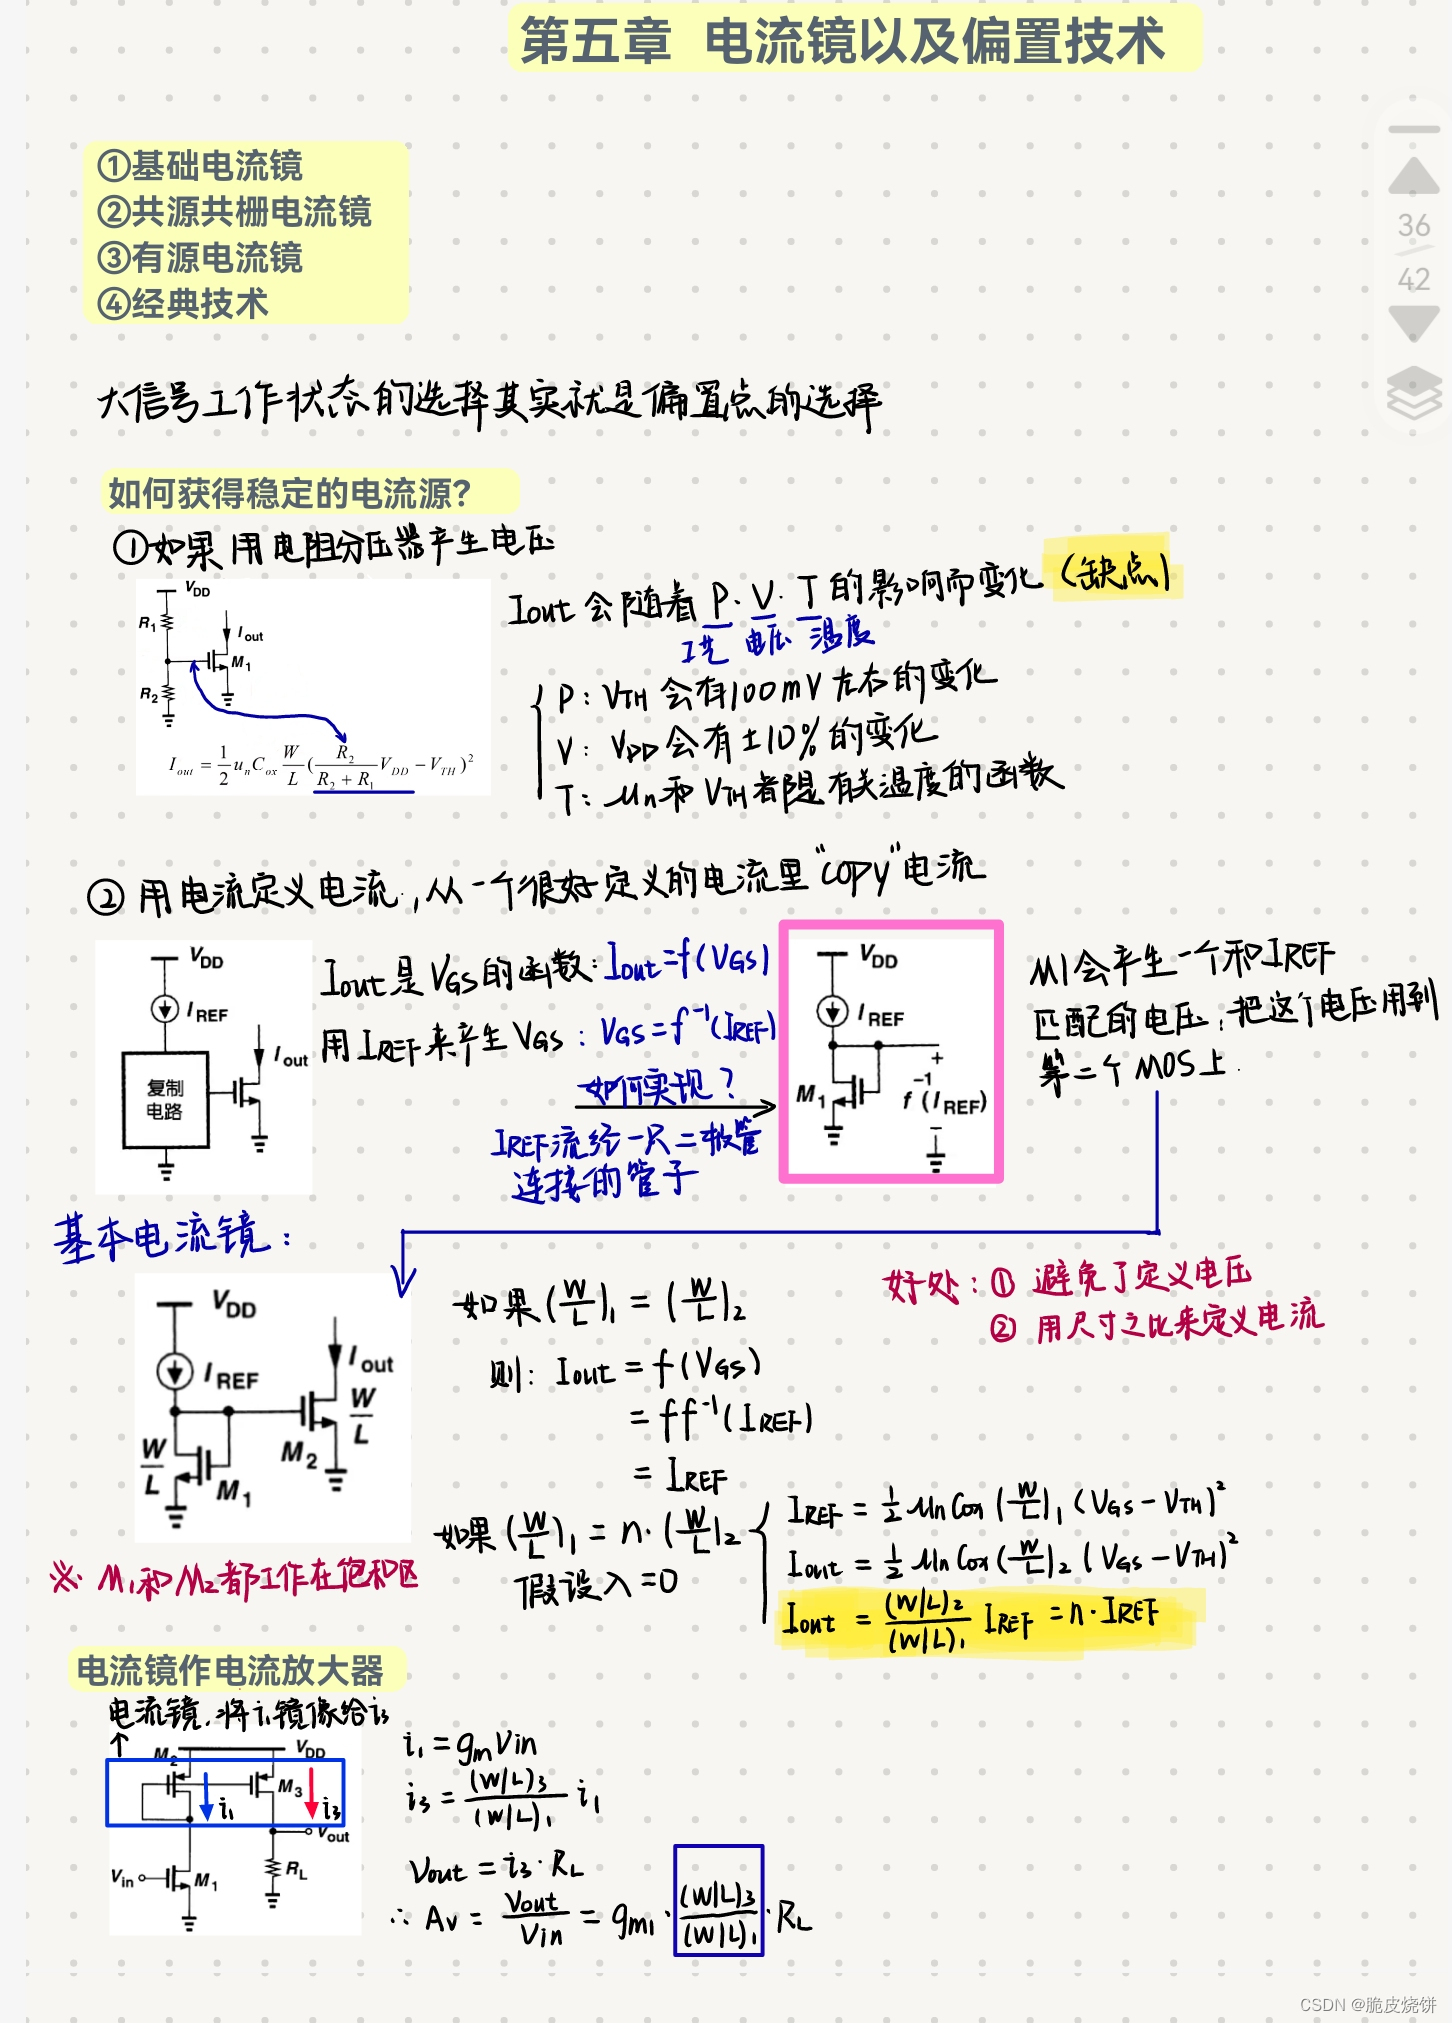 第五章 电流镜以及偏置技术
①基础电流镜
②共源共栅电流镜
③有源电流镜
④经典技术
36
42
大信号工作状态的选择其实就是偏置点的选择
如何获得稳定的电流源?
①如果用电阻分压器产生电压
V_DD
R_1
I_out
M_1
R_2
I_out = 1/2 u_n C_ox W/L (R_2/(R_2+R_1) V_DD - V_TH)^2
Iout 会随着 P. V. T 的影响而变化 (缺点)
工艺 电压 温度
P: V_TH 会有100mV左右的变化
V: V_DD 会有±10%的变化
T: μn和 V_TH 都是有关温度的函数
② 用电流定义电流,从一个很好定义的电流里"copy"电流
V_DD
I_REF
I_out
复制
电路
Iout是V_GS的函数: Iout=f(V_GS)
用I_REF来产生V_GS: V_GS=f^-1(I_REF)
如何实现?
I_REF流经一只二极管
连接的管子
V_DD
I_REF
M_1
+
f^-1(I_REF)
-
M1会产生一个和I_REF
匹配的电压,把这个电压用到
第二个MOS上.
基本电流镜:
V_DD
I_REF
I_out
W/L
M_2
W/L
M_1
※ M_1和M_2都工作在饱和区
如果 (W/L)_1 = (W/L)_2
则: Iout = f(V_GS)
= ff^-1(I_REF)
= I_REF
好处: ① 避免了定义电压
② 用尺寸之比来定义电流
如果 (W/L)_1 = n·(W/L)_2
假设λ=0
I_REF = 1/2 μn Cox (W/L)_1 (V_GS-V_TH)^2
Iout = 1/2 μn Cox (W/L)_2 (V_GS-V_TH)^2
Iout = (W/L)_2/(W/L)_1 I_REF = n·I_REF
电流镜作电流放大器
电流镜,将i_1镜像给i_3
M_2
V_DD
M_3
i_1
i_3
V_out
V_in
M_1
R_L
i_1 = g_m Vin
i_3 = (W/L)_3/(W/L)_1 i_1
Vout = i_3·R_L
∴ Av = Vout/Vin = g_m1·(W/L)_3/(W/L)_1·R_L
CSDN @脆皮烧饼